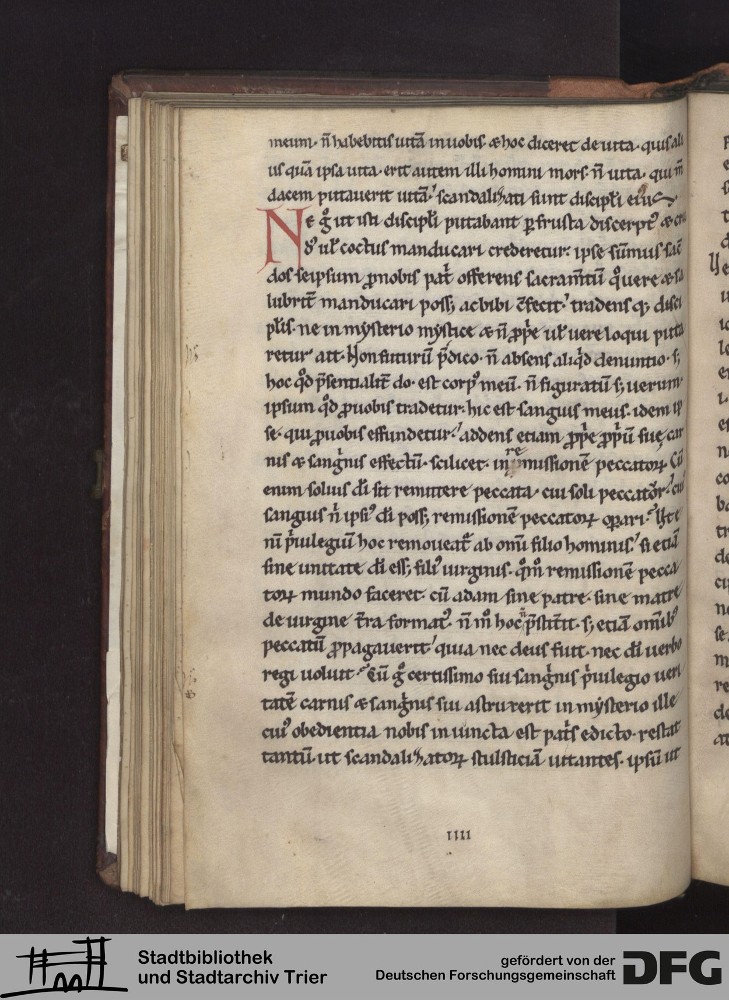 meum. n̄ habebitis uitā in uobis. & hoc diceret de uita. quis ali
us quā ipsa uita. erit autem illi homini mors. n̄ uita. qui m̄
dacem putauerit uitā. scandalizati sunt discipłi eius.
Ne g̊ ut isti discipłi putabant ꝑ frusta discerpt᷒ & cru
d᷒ uł coctus manducari crederetur. ipse sūmus sac̄
dos seipsum ꝓ nobis pat̄ offerens sacram̄tū q̊ uere & sa
lubrit̄ manducari poss; ac bibi c̄fecit. tradens q; disci
płis. ne in mysterio mystice & n̄ ꝓpe uł uere loqui puta
retur ait. Non futurū p̄dico. n̄ absens aliq̇d denuntio. s;
hoc q̊d p̄sentialit̄ do. est corp᷒ meū. n̄ figuratū s; uerum.
ipsum q̊d ꝓ uobis tradetur. hic est sanguis meus. idem ip
se. qui ꝓ uobis effundetur. addens etiam ꝓpe ꝓpū suę car
nis & sangnis effectū. scilicet. in remissionē peccatoꝝ. Cū
enim solius dī sit remittere peccata. cui soli peccator̄. cui᷒
sanguis n̄ ipsi᷒ dī poss; remissionē peccatoꝝ oꝑari.
nī p̄iuilegiū hoc remoueat᷑ ab omī filio hominis. si etiā
sine unitate dī ess; fili᷒ uirginis. qm̄ remissionē pecca
toꝝ mundo faceret. cū adam sine patre. sine matre
de uirgine t̄ra format᷒. n̄ m̊ hoc p̄stit̄it. s; etiā omīb᷒
peccatū ꝓpagauerit. quia nec deus fuit. nec dī uerbo
regi uoluit. Cū g̊ certissimo sui sangnis p̄iuilegio ueri
tatē carnis & sangnis sui astruxerit in mysterio ille
cui᷒ obedientia nobis in uincta est pat̄s edicto. restat
tantū. ut scandalizatoꝝ stulticiā uitantes. ipsū ut
IIII
Stadtbibliothek
und Stadtarchiv Trier
gefördert von der
Deutschen Forschungsgemeinschaft
DFG